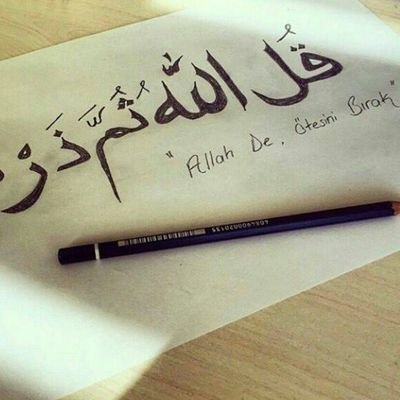 قُلِ اللّٰهُ ثُمَّ ذَرْه
"Allah De, ötesini Bırak"
4084900020135